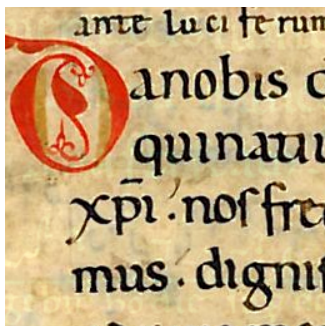 ante luciferum
Da nobis
quinatiui
xp̄i. nos fre
mus. digni